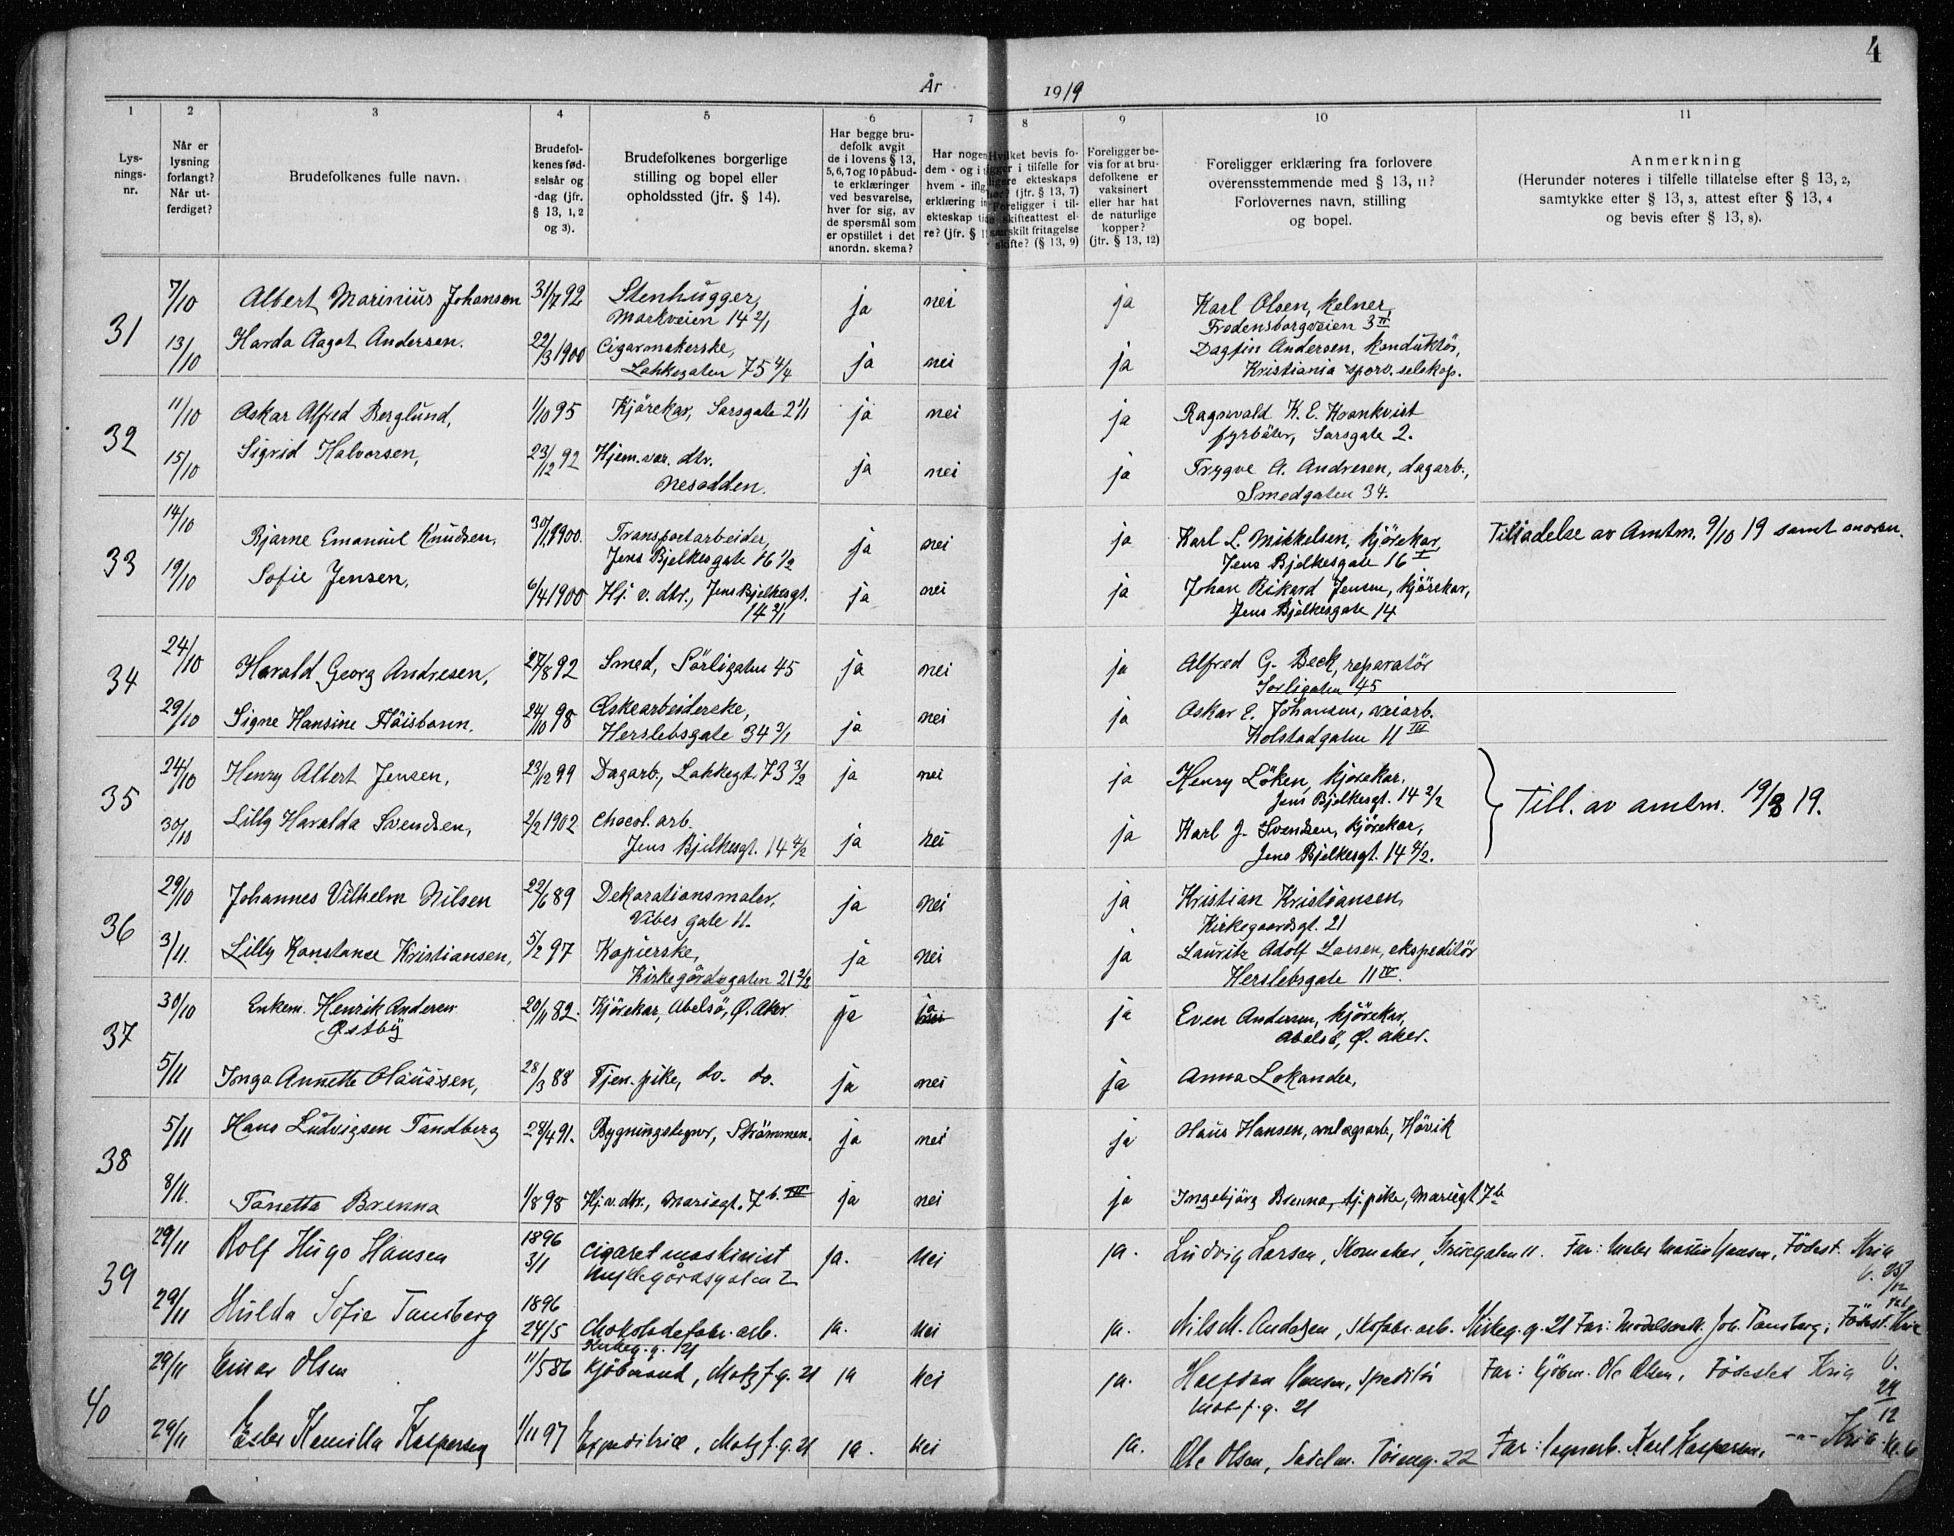 4
År 1919
1 2 3 4 5 6 7 8 9 10 11
Lys-
nings-
nr.
Når er
lysning
forlangt?
Når ut-
ferdiget?
Brudefolkenes fulle navn.
Brudefol-
kenes fød-
selsår og
-dag (jfr.
§ 13, 1, 2
og 3).
Brudefolkenes borgerlige
stilling og bopel eller
opholdssted (jfr. § 14).
Har begge bru-
defolk avgit
de i lovens § 13,
5, 6, 7 og 10 påbud-
te erklæringer
ved besvarelse,
hver for sig, av
de spørsmål som
er opstillet i det
anordn. skema?
Har nogen
dem - og i
hvem -
erklæring
ekteskap
re? (jfr. § 1
Hvilket bevis fo-
ligger i tilfelle for
ekteskaps
(jfr. § 13, 7)
Foreligger i til-
skifteattest el-
særskilt fritagelse
skifte? (§ 13, 9)
Foreligger be-
vis for at bru-
defolkene er
vaksinert
eller har hat
de naturlige
kopper?
(jfr. § 13, 12)
Foreligger erklæring fra forlovere
overensstemmende med § 13, 11?
Forlovernes navn, stilling
og bopel.
Anmerkning
(Herunder noteres i tilfelle tillatelse efter § 13, 2,
samtykke efter § 13, 3, attest efter § 13, 4
og bevis efter § 13, 8).
31
7/10 Albert Marinius Johansen 31/7 92 Stenhugger, ja nei ja Karl Olsen, kelner,
Markveien 14 2/1 Fredensborgveien 3 II
13/10 Harda Aagot Andersen. 22/3 1900 Cigarmakerske, ja nei ja Dagfin Andersen, konduktør,
Lakkegaten 75 4/4 Kristiania sporv. selskap.
32
11/10 Oskar Alfred Berglund, 1/10 95 Kjörekar, Sarsgate 2 1/1 ja nei ja Ragnvald K. E. Kronkvist
fyrbøter, Sarsgate 2.
15/10 Sigrid Halvorsen, 23/12 92 Hjem. var. dtr. ja nei ja Trygve A. Andresen, dagarb.,
Nesodden. Smedgaten 34.
33
14/10 Bjarne Emanuel Knudsen, 30/11 1900. Transportarbeider, ja nei ja Karl L. Mikkelsen, kjörekar, Tilladelse av Amtm. 9/10 19 samt moren.
Jens Bjelkesgate 16 1/2 Jens Bjelkesgate 16 I
19/10 Sofie Jensen, 6/4 1900 Hj. v. dtr., Jens Bjelkesgt. ja nei ja Johan Rikard Jensen, kjörekar,
14 2/1 Jens Bjelkesgate 14
34
24/10 Harald Georg Andresen, 27/8 92 Smed, Sörligaten 45 ja nei ja Alfred G. Beck, reparatör
Sorligaten 45
29/10 Signe Hansine Höisbonn, 24/10 98 Æskearbeiderske, ja nei ja Oskar E. Johansen, veiarb.
Herslebsgate 34 3/1 Kolstadgaten 11 IV
35
24/10 Henry Albert Jensen, 23/12 99 Dagarb., Lakkegt. 73 3/2 ja nei ja Henry Löken, kjörekar,
Jens Bjelkesgt. 14 2/2
Till. av amtm. 19/8 19.
30/10 Lilly Haralda Svendsen, 2/2 1902 Chocol. arb. ja nei ja Karl J. Svendsen, kjörekar,
Jens Bjelkesgt. 14 4/2 Jens Bjelkesgt. 14 4/2.
36
29/10 Johannes Vilhelm Nilsen 22/6 89 Dekorationsmaler, ja nei ja Kristian Kristiansen,
Vibes gate 11. Kirkegaardsgt. 21
3/11. Lilly Konstanse Kristiansen, 5/2 97 Kopierske, ja nei ja Lauritz Adolf Larsen, ekspeditør
Kirkegårdsgaten 21 2/2 Herslebsgate 11 IV.
37
30/10 Enkem. Henrik Andersen 20/11 82. Kjörekar, Abelsö, Ø. Aker ja ja nei ja Even Andersen, kjörekar,
Østby Abelsö, Ø. Aker.
5/11 Inga Annette Olaussen, 28/3 88 Tjen. pike, do. do. ja nei ja Anna Lokander,
38
5/11 Hans Ludvigsen Tandberg 28/4 91. Bygningstegner, Strömmen. ja nei ja Olaus Hansen, anlægsarb., Hövik
8/11. Tanetta Brenna 1/8 98 Hj. v. dtr., Mariagt. 7 b. III ja nei ja Ingebjörg Brenna, tj. pike, Mariegt 7 b
39
29/11 Rolf Hugo Hansen 1896 3/1 Cigaretmaskinist ja. Nei ja. Ludvig Larsen, Skomaker, Gruegaten 11. Far: Maler Hansen, Födest. Kria
2 V. 25/12
29/11 Hulda Sofie Tansberg 1896 24/5 Chokoladefabr. arb. ja. Nei ja. Nils M. Andersen, Skofabr. arb. Kirkeg. g. 21 Far: Modelsn. Joh. Tansberg, Födest. Kria
Kirkeg. g. 21
40
29/11 Einar Olsen 11/5 86 Kjöbmand, Motzf. g. 21 ja Nei ja. Halfdan Hansen, Speditör Far: Kjöbm. Ole Olsen, Födested Kria V.
Motzf. g. 21 24/12
29/11 Ester Kamilla Kaspersen 1/11 97 Expeditrice, Motzf. g. 21 ja. Nei ja. Ole Olsen, Sadelm. Töieng. 22 Far: Karl Kaspersen, -"- Kria Kl. 6